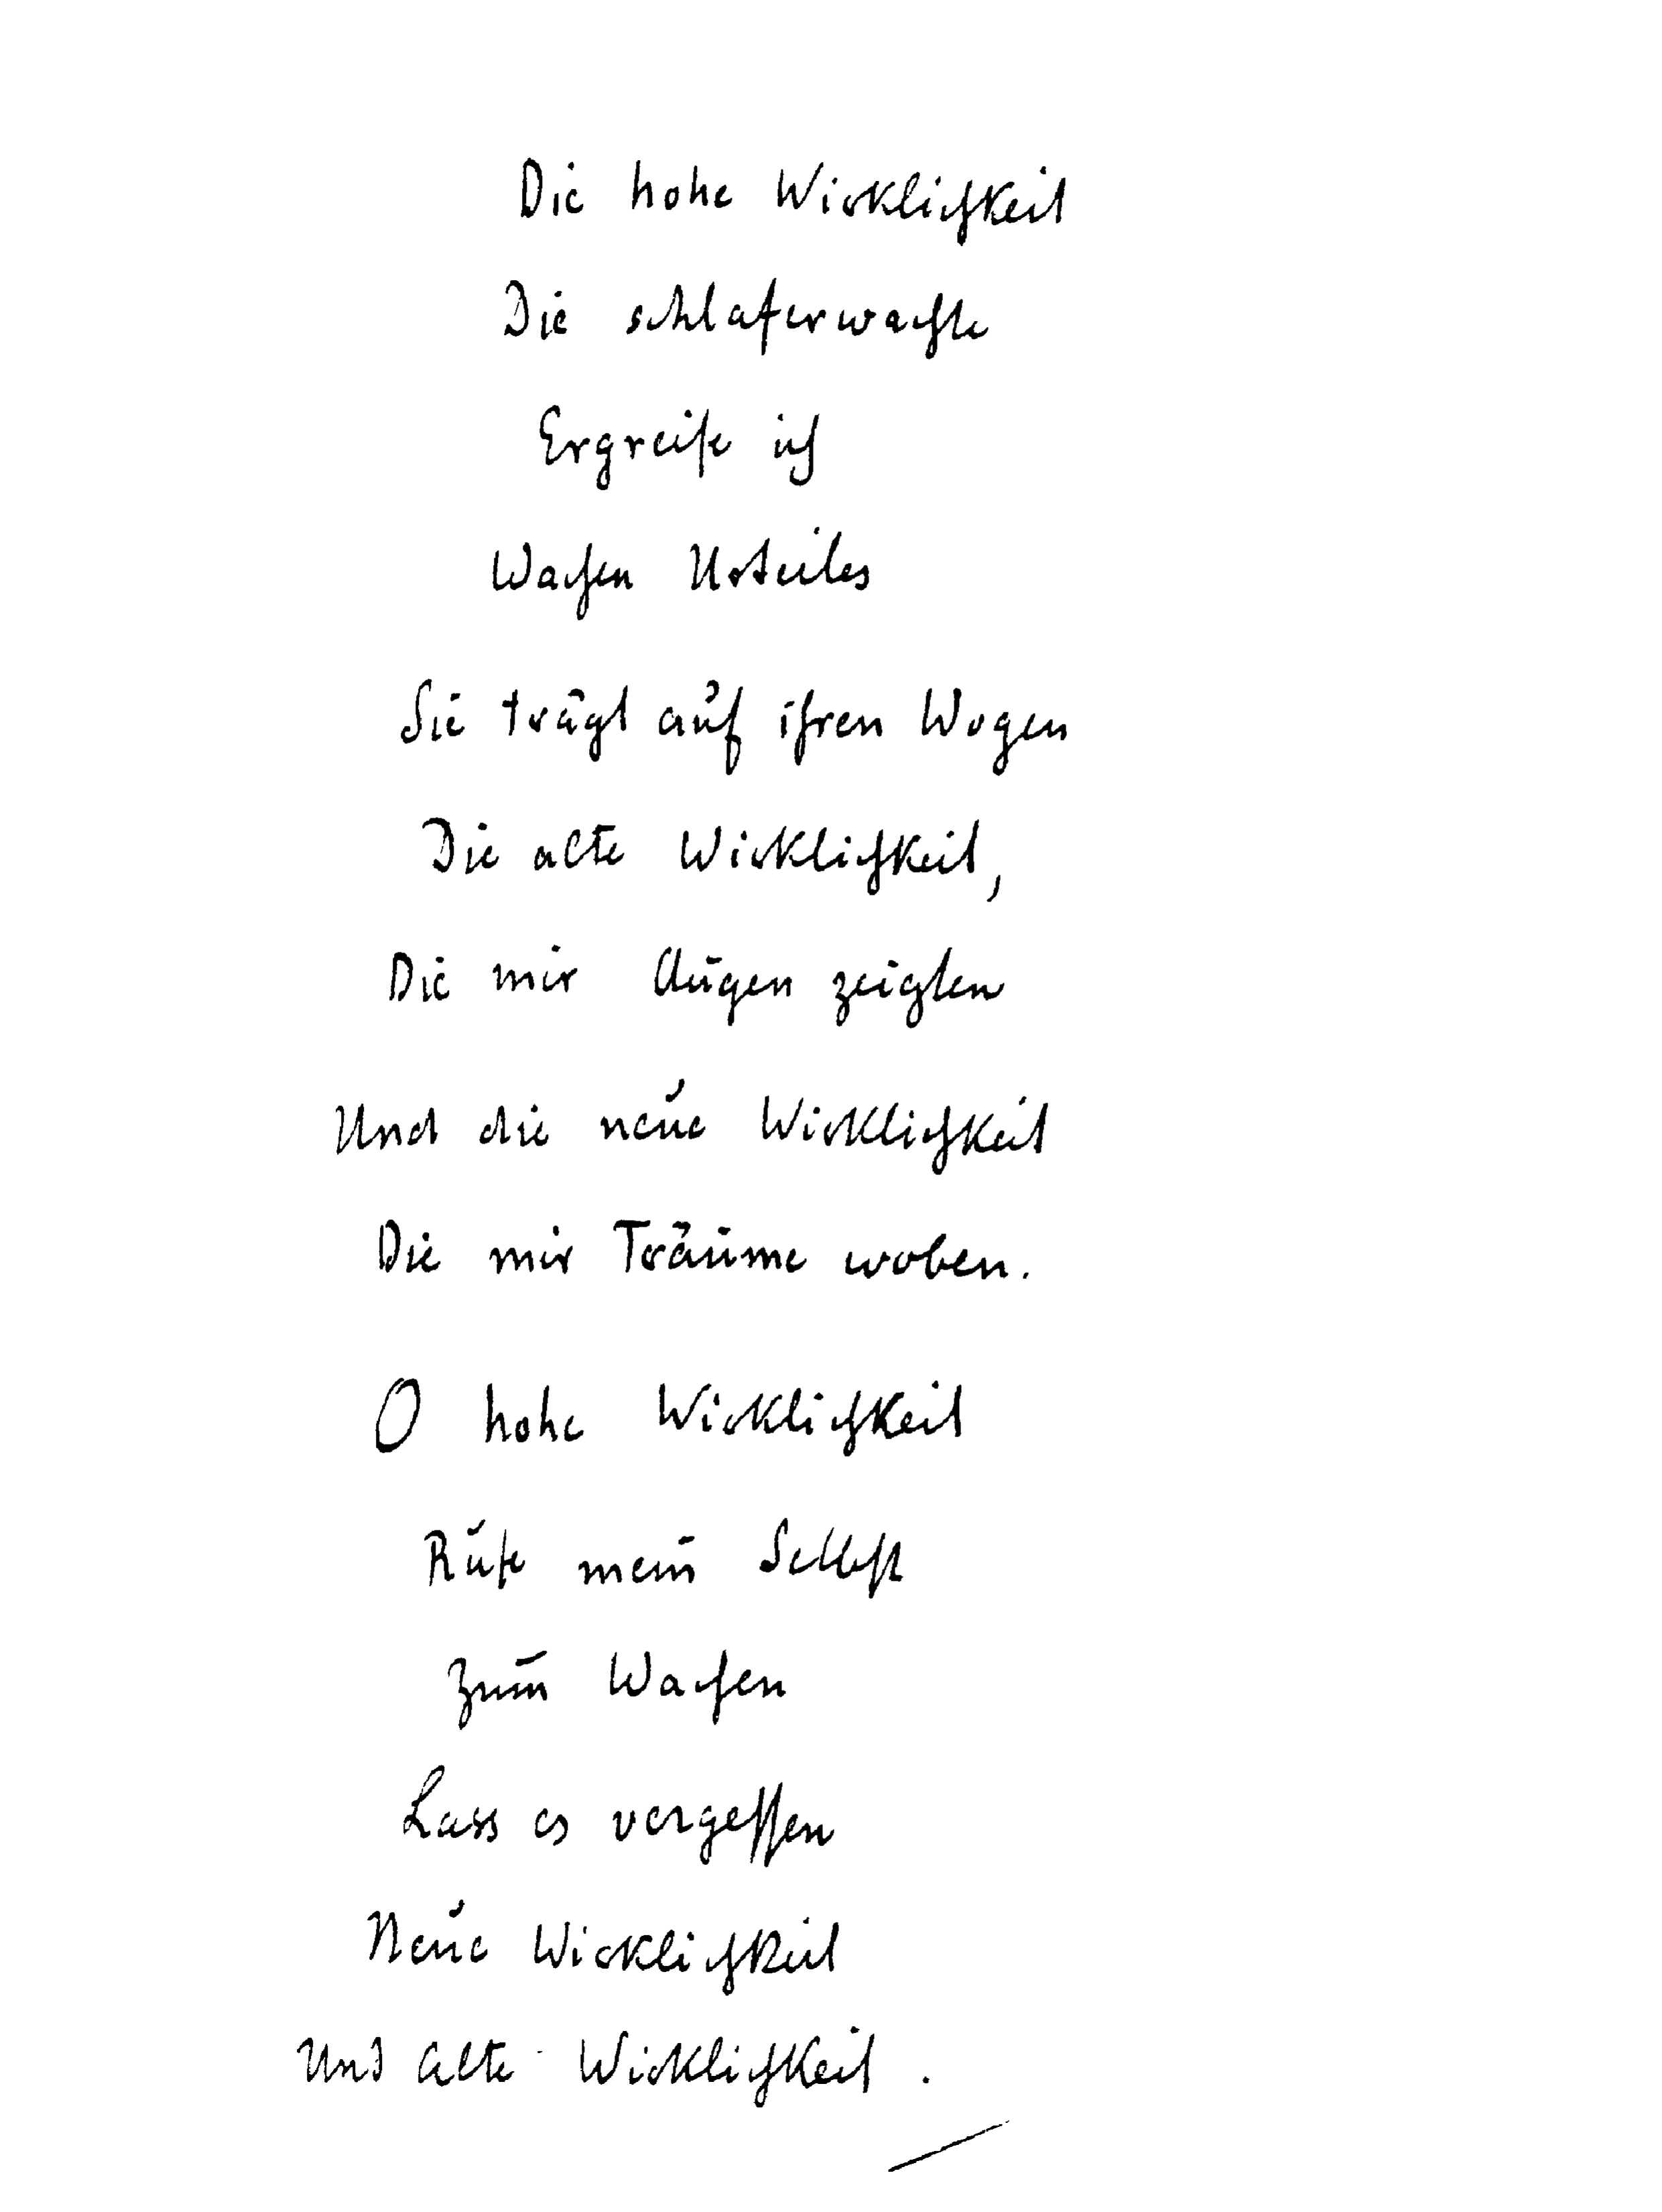 Die hohe Wirklichkeit
Die schlaferwachte
Ergreife ich
Wachen Urteiles
Sie trägt auf ihren Wogen
Die alte Wirklichkeit,
Die mir Augen zeigten
Und die neue Wirklichkeit
Die mir Träume woben.
O hohe Wirklichkeit
Rufe mein Selbst
Zum Wachen
Lass es vergessen
Neue Wirklichkeit
Und alte Wirklichkeit.